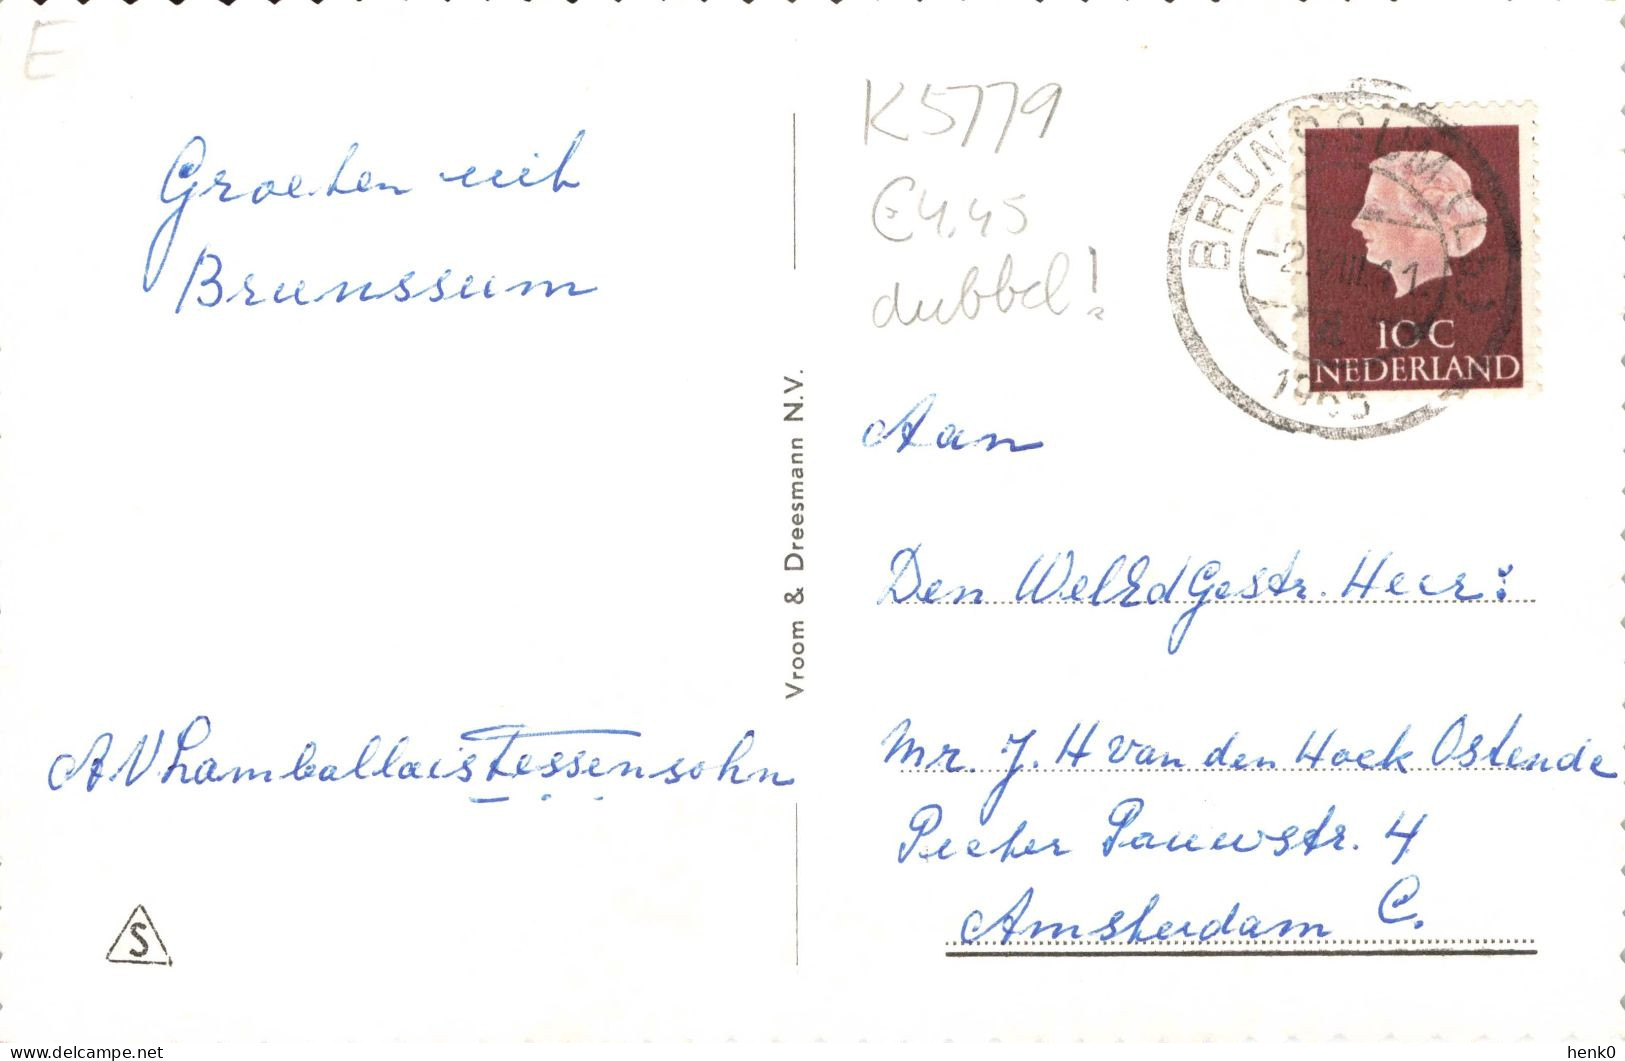 E
Groeten uit
Brunssum
AVLamballaisTessensohn
S
Vroom & Dreesmann N.V.
K5779
€4,45
dubbel!
BRUNSSUM
2.VIII.11.
1965
10C
NEDERLAND
Aan
Den WelEdGestr. Heer:
Mr. J. H van den Hoek Ostende
Pieter Pauwstr. 4
Amsterdam C.
henk0
delcampe.net